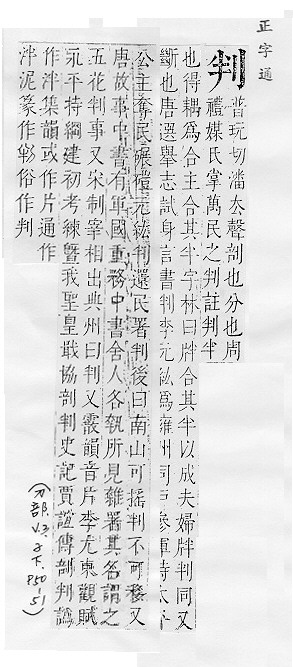 正字通
判
普玩切潘去聲剖也分也周
禮媒氏掌萬民之判註判半
也得耦爲合主合其半字林曰牉合其半以成夫婦牉判同又
斷也唐選舉志試身言書判李元紘爲雍州司戶參軍時太平
公主奪民碾磑元紘判還民署判後曰南山可搖判不可移又
唐故事中書有軍國重務中書舍人各執所見雜署其名謂之
五花判事又宋制宰相出典州曰判又霰韻音片李尤東觀賦
永平持綱建初考練曁我聖皇戢協剖判史記賈誼傳剖判譌
作泮集韻或作片通作
泮泥篆作俗作判
(刀部, V.3, 子下, P50-51)